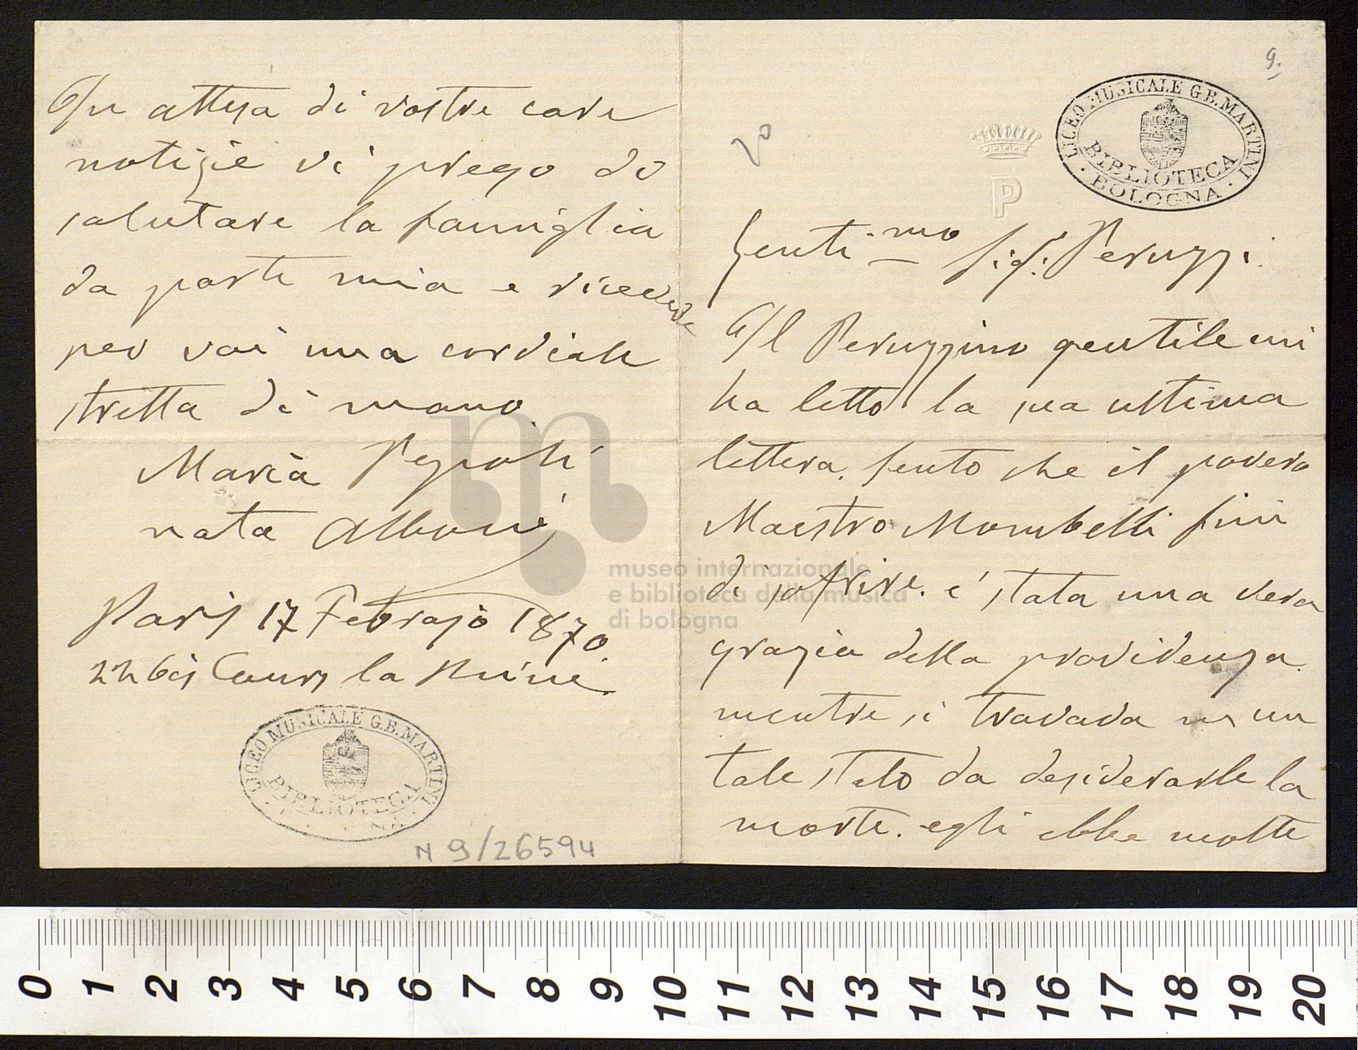 9.
20
LICEO MUSICALE G.B. MARTINI
BIBLIOTECA
BOLOGNA
P
Genti.mo Sig. Peruzzi.
Il Peruzzino gentile mi
ha letto la sua ultima
lettera, sento che il povero
Maestro Mombelli finì
di soffrire. è stata una vera
grazia della providenza
mentre si trovava in un
tale stato da desiderarle la
morte. egli ebbe molte
In attesa di vostre care
notizie vi prego di
salutare la famiglia
da parte mia e ricevete
per voi una cordiale
stretta di mano
Maria Pepoli
nata Alboni
Paris 17 Febrajo 1870.
22 bis Cours la Reine
LICEO MUSICALE G.B. MARTINI
BIBLIOTECA
N 9/26594
museo internazionale
e biblioteca della musica
di bologna
0 1 2 3 4 5 6 7 8 9 10 11 12 13 14 15 16 17 18 19 20